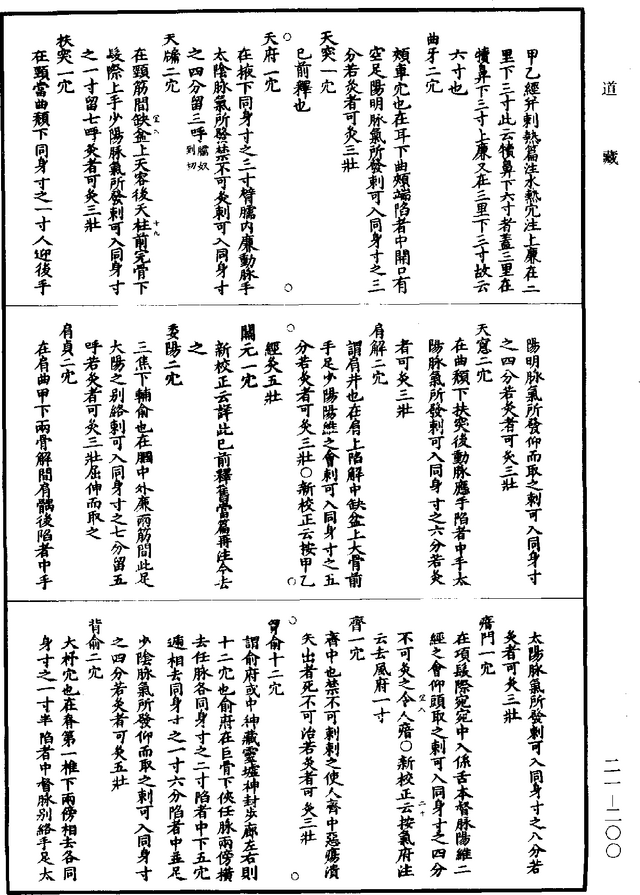 道藏
甲乙經并刺熱篇注水熱穴注上廉在二
里下三寸此云犢鼻下六寸者蓋三里在
犢鼻下三寸上廉又在三里下三寸故云
六寸也
曲牙二穴
頰車穴也在耳下曲頰端陷者中開口有
空足陽明脉氣所發刺可入同身寸之三
分若灸者可灸三壯
天突一穴
已前釋也
天府二穴
在掖下同身寸之三寸臂臑内廉動脉手
太陰脉氣所發禁不可灸刺可入同身寸
之四分留三呼臑奴到切
天牖二穴
在頸筋間缺盆上天容後天柱前完骨下
髮際上手少陽脉氣所發刺可入同身寸
之一寸留七呼灸者可灸三壯
扶突二穴
在頸當曲頰下同身寸之一寸人迎後手
陽明脉氣所發仰而取之刺可入同身寸
之四分若灸者可灸三壯
天窓二穴
在曲頰下扶突後動脉應手陷者中手太
陽脉氣所發刺可入同身寸之六分若灸
者可灸三壯
肩解二穴
謂肩井也在肩上陷解中缺盆上大骨前
手足少陽陽維之會刺可入同身寸之五
分若灸者可灸三壯○新校正云按甲乙
經灸五壯
關元一穴
新校正云詳此已前釋舊當篇再注今去
之
委陽二穴
三焦下輔俞也在膕中外廉兩筋間此足
太陽之別絡刺可入同身寸之七分留五
呼若灸者可灸三壯屈伸而取之
肩貞二穴
在肩曲甲下兩骨解間肩髃後陷者中手
太陽脉氣所發刺可入同身寸之八分若
灸者可灸三壯
瘖門一穴
在項髮際宛宛中入係舌本督脉陽維二
經之會仰頭取之刺可入同身寸之四分
不可灸之令人瘖○新校正云按氣府注
云去風府一寸
齊一穴
齊中也禁不可刺刺之使人齊中惡瘍潰
矢出者死不可治若灸者可灸三壯
膺俞十二穴
謂俞府彧中神藏靈墟神封步廊左右則
十二穴也俞府在巨骨下俠任脉兩傍橫
去任脉各同身寸之二寸陷者中下五穴
遞相去同身寸之一寸六分陷者中並足
少陰脉氣所發仰而取之刺可入同身寸
之四分若灸者可灸五壯
背俞二穴
大杼穴也在脊第一椎下兩傍相去各同
身寸之一寸半陷者中督脉別絡手足太
二一—二〇〇